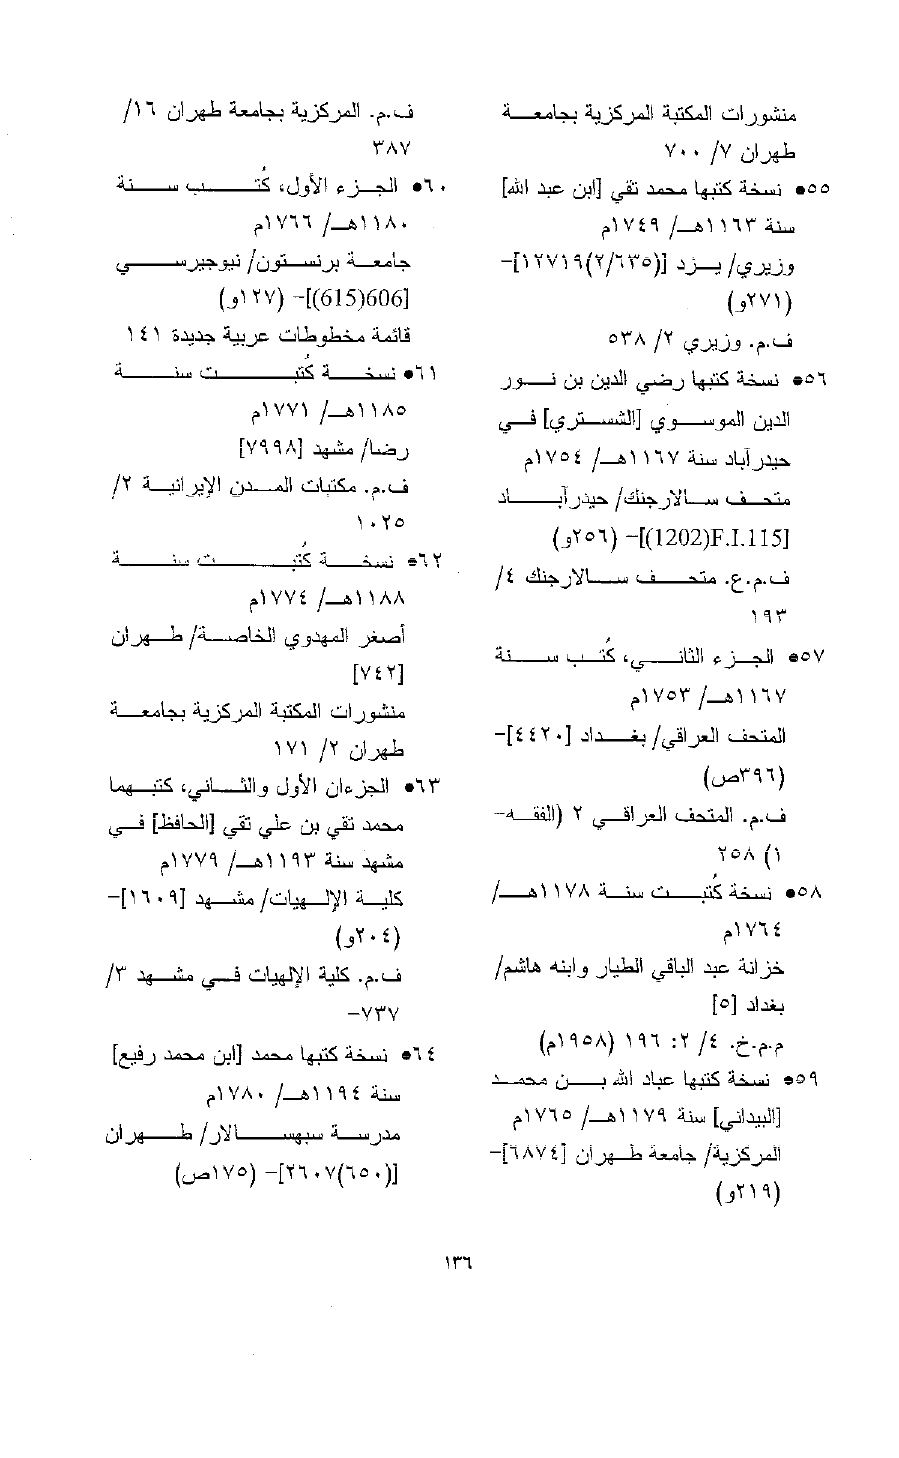 منشورات المكتبة المركزية بجامعة
طهران ٧/ ٧٠٠
٥٥• نسخة كتبها محمد تقي [ابن عبد الله]
سنة ١١٦٣هـ/ ١٧٤٩م
وزيري/ يزد [(٢/٦٣٥)١٢٧١٩]-
(٢٧١و)
ف.م. وزيري ٢/ ٥٣٨
٥٦• نسخة كتبها رضي الدين بن نور
الدين الموسوي [الشستري] في
حيدرآباد سنة ١١٦٧هـ/ ١٧٥٤م
متحف سالارجنك/ حيدرآباد
[F.I.115(1202)]- (٢٥٦و)
ف.م.ع. متحف سالارجنك ٤/
١٩٣
٥٧• الجزء الثاني، كُتب سنة
١١٦٧هـ/ ١٧٥٣م
المتحف العراقي/ بغداد [٤٤٢٠]-
(٣٩٦ص)
ف.م. المتحف العراقي ٢ (الفقه-
١) ٢٥٨
٥٨• نسخة كُتبت سنة ١١٧٨هـ/
١٧٦٤م
خزانة عبد الباقي الطيار وابنه هاشم/
بغداد [٥]
م.م.خ. ٤/ ٢: ١٩٦ (١٩٥٨م)
٥٩• نسخة كتبها عباد الله بن محمد
[البيداني] سنة ١١٧٩هـ/ ١٧٦٥م
المركزية/ جامعة طهران [٦٨٧٤]-
(٢١٩و)
ف.م. المركزية بجامعة طهران ١٦/
٣٨٧
٦٠• الجزء الأول، كُتب سنة
١١٨٠هـ/ ١٧٦٦م
جامعة برنستون/ نيوجيرسي
[606(615)]- (١٢٧و)
قائمة مخطوطات عربية جديدة ١٤١
٦١• نسخة كُتبت سنة
١١٨٥هـ/ ١٧٧١م
رضا/ مشهد [٧٩٩٨]
ف.م. مكتبات المدن الإيرانية ٢/
١٠٢٥
٦٢• نسخة كُتبت سنة
١١٨٨هـ/ ١٧٧٤م
أصغر المهدوي الخاصة/ طهران
[٧٤٢]
منشورات المكتبة المركزية بجامعة
طهران ٢/ ١٧١
٦٣• الجزءان الأول والثاني، كتبهما
محمد تقي بن علي تقي [الحافظ] في
مشهد سنة ١١٩٣هـ/ ١٧٧٩م
كلية الإلهيات/ مشهد [١٦٠٩]-
(٢٠٤و)
ف.م. كلية الإلهيات في مشهد ٣/
٧٣٧-
٦٤• نسخة كتبها محمد [ابن محمد رفيع]
سنة ١١٩٤هـ/ ١٧٨٠م
مدرسة سبهسالار/ طهران
[(٦٥٠)٢٦٠٧]- (١٧٥ص)
١٣٦